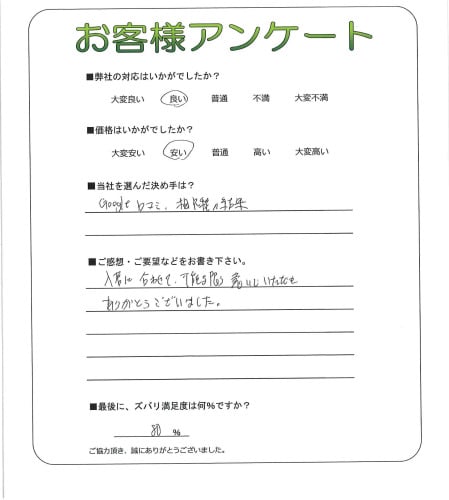 お客様アンケート
■弊社の対応はいかがでしたか?
大変良い 良い 普通 不満 大変不満
■価格はいかがでしたか?
大変安い 安い 普通 高い 大変高い
■当社を選んだ決め手は?
Google 口コミ、相見積の結果
■ご感想・ご要望などをお書き下さい。
入居に合わせて、 いただき
ありがとうございました。
■最後に、ズバリ満足度は何%ですか?
80 %
ご協力頂き、誠にありがとうございました。